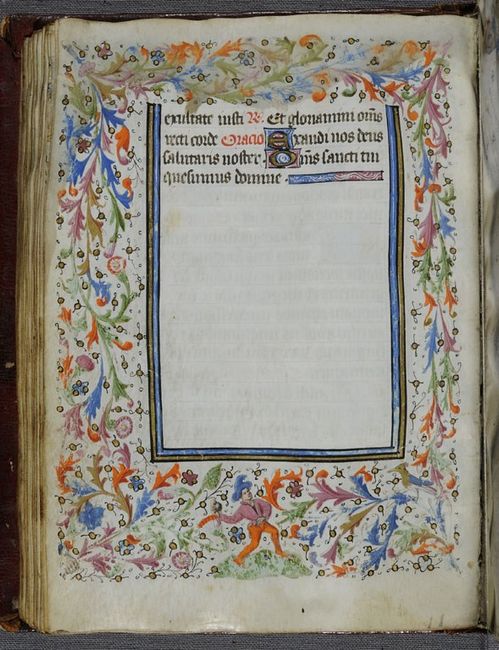 exultate iusti R. Et gloriamini om̄s
recti corde Oracio Exaudi nos deus
salutaris noster. Om̄s sancti tui
quesumus domine